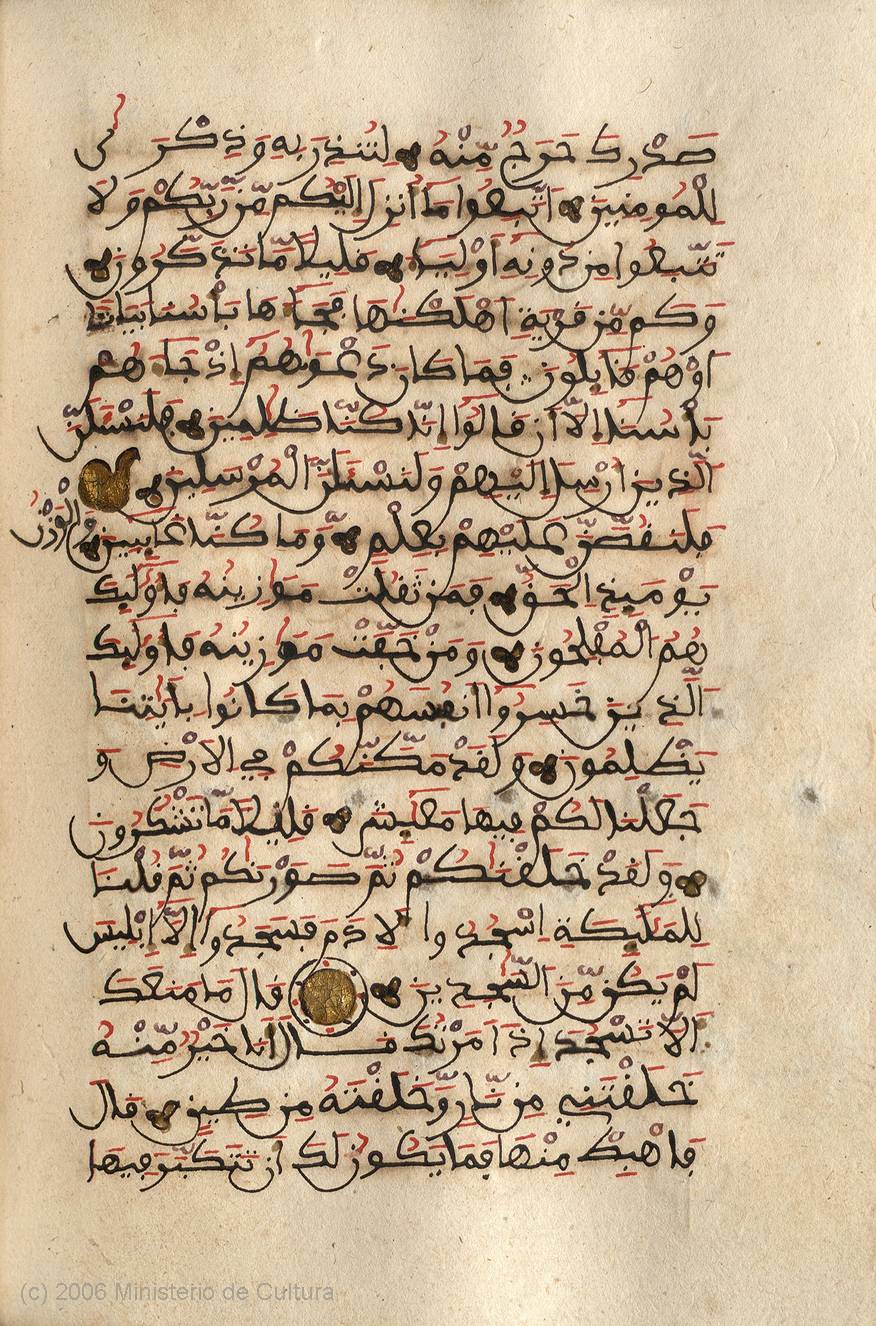 صدرك حرج منه لتنذر به وذكرى
للمومنين اتبعوا ما أنزل إليكم من ربكم ولا
تتبعوا من دونه أولياء قليلا ما تذكرون
وكم من قرية اهلكنها فجاءها بأسنا بياتا
او هم قايلون فما كان دعويهم إذ جاءهم
بأسنا إلا أن قالوا إنا كنا ظلمين فلنسئلن
الذين ارسل إليهم ولنسئلن المرسلين
فلنقصن عليهم بعلم وما كنا غايبين والوزن
يوميذ الحق فمن ثقلت موزينه فأوليك
هم المفلحون ومن خفت موزينه فأوليك
الذين خسروا أنفسهم بما كانوا بايتنا
يظلمون ولقد مكنكم في الارض و
جعلنا لكم فيها معيش قليلا ما تشكرون
ولقد خلقنكم ثم صورنكم ثم قلنا
للمليكة اسجدوا لادم فسجدوا إلا إبليس
لم يكن من السجدين قال ما منعك
ألا تسجد إذ امرتك قال أنا خير منه
خلقتني من نار وخلقته من طين قال
فاهبط منها فما يكون لك أن تتكبر فيها
(c) 2006 Ministerio de Cultura